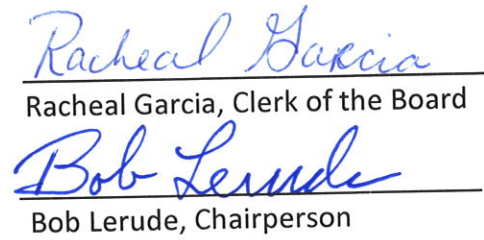 Racheal Garcia
Racheal Garcia, Clerk of the Board
Bob Lerude
Bob Lerude, Chairperson